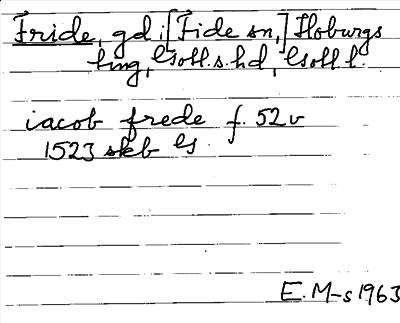 Fride, gd i [Fide sn,] Hoburgs
ting, Gotl. s. hd, Gotl. l.
iacob frede f. 52v
1523 skb
E. M-s 1963